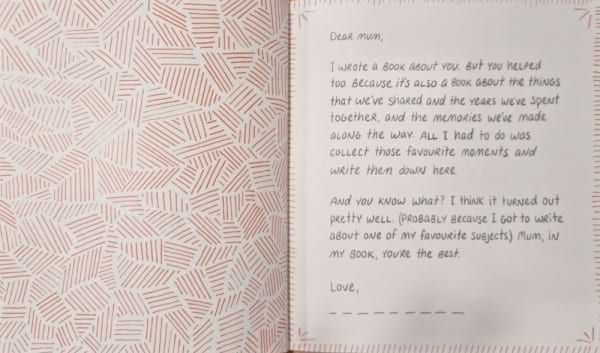 Dear mum,
I wrote a book about you. But you helped
too. Because it's also a book about the things
that we've shared and the years we've spent
together, and the memories we've made
along the way. All I had to do was
collect those favourite moments and
write them down here.
And you know what? I think it turned out
pretty well. (Probably because I got to write
about one of my favourite subjects.) Mum, in
my book, you're the best.
Love,
_ _ _ _ _ _ _ _ _ _